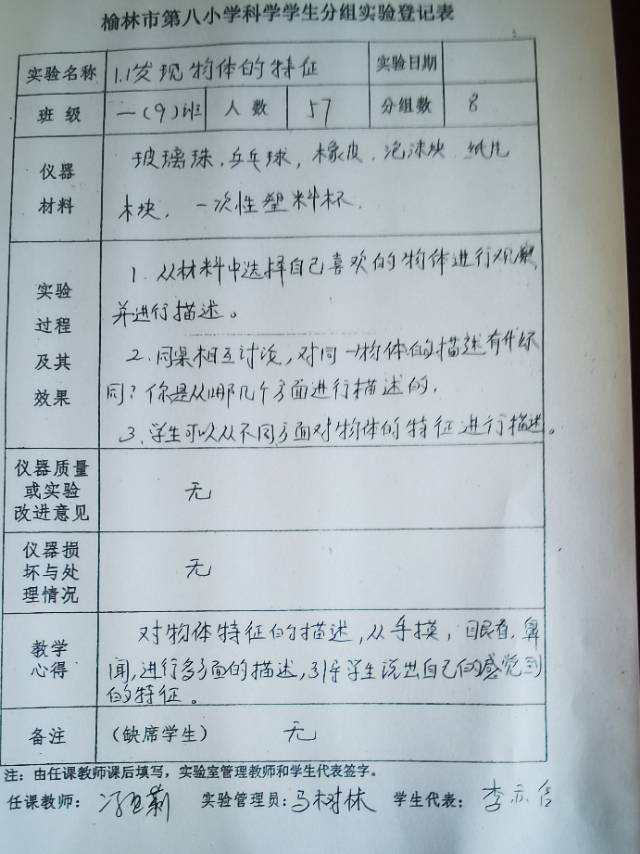 榆林市第八小学科学学生分组实验登记表
实验名称 1.1发现物体的特征 实验日期
班级 一(9)班 人数 57 分组数 8
仪器材料 玻璃珠、乒乓球、橡皮、泡沫块 纸片
木块、一次性塑料杯
实验过程及其效果
1. 从材料中选择自己喜欢的物体进行观察
并进行描述。
2. 同桌相互讨论,对同一物体的描述有什么不
同?你是从哪几个方面进行描述的.
3. 学生可以从不同方面对物体的特征进行描述。
仪器质量
或实验
改进意见
无
仪器损
坏与处
理情况
无
教学
心得
对物体特征的描述,从手摸,眼看,鼻
闻,进行多方面的描述,引导学生说出自己的感觉到
的特征。
备注 (缺席学生) 无
注:由任课教师课后填写,实验室管理教师和学生代表签字。
任课教师: 实验管理员:马树林 学生代表:李